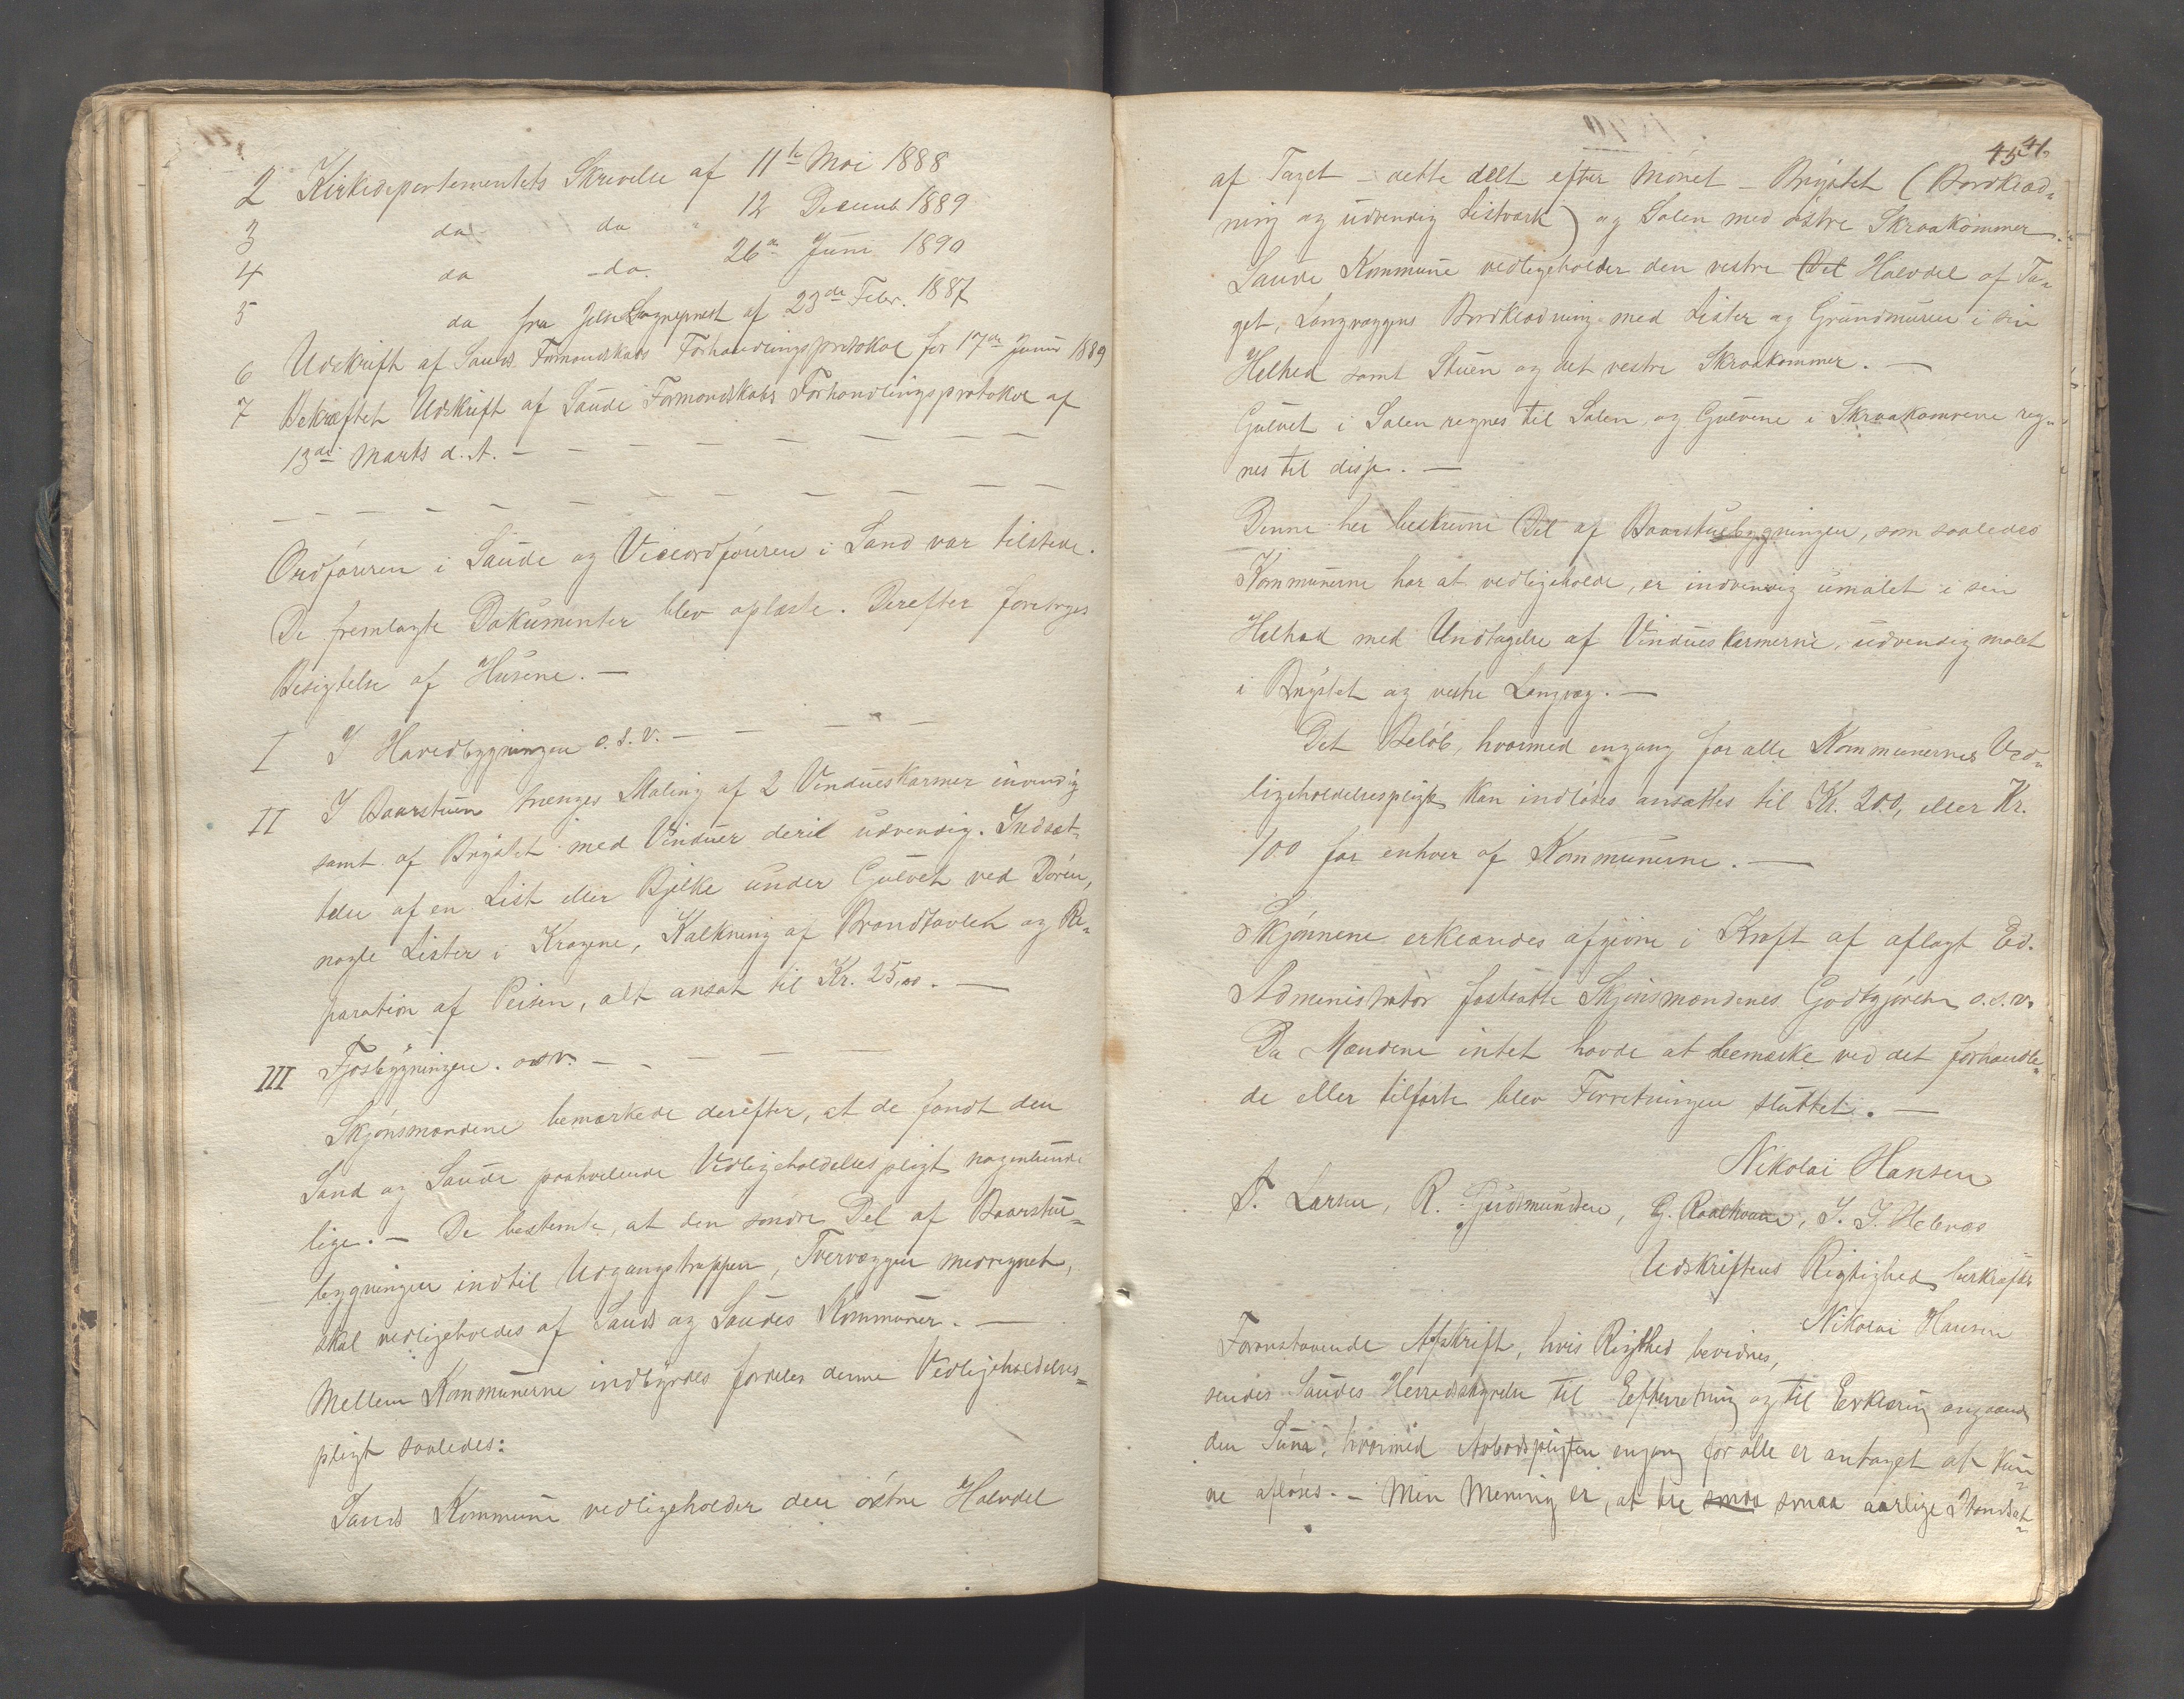 2 Kirkedepartementets Skrivelse af 11te Mai 1888
3 do do 12 Decemb 1889
4 do do. 26de Juni 1890
5 do fra Jelse Sogneprest af 23de Febr. 1887
6 Udskrift af Sands Formandskabs Forhandlingsprotokol for 17de Juni 1889
7 Bekræftet Udskrift af Saude Formandskabs Forhandlingsprotokol af
13de Marts d. A. — — — — — — — —
— — — — — — — — — —
Ordføreren i Saude og Viceordføreren i Sand var tilstede.
De fremlagte Dokumenter blev oplæste. Derefter foretoges
Besigtelse af Husene. —
I I Hovedbygningen o. s. v. — — — — —
II I Baarstuen trænges Maling af 2 Vindueskarmer invendig
samt af Brystet med Vinduer deri udvendig. Indsæt-
telse af en List eller Bjelke under Gulvet ved Døren,
nogle Lister i Krogene, Kalkning af Brandtavlen og Re-
paration af Peisen, alt ansat til Kr. 25,00. —
III Fjøsbygningen. osv. — — — — —
Skjønsmændene bemærkede derefter, at de fandt den
Sand og Saude paahvilende Vedligeholdelsespligt nogenlunde
lige. — De bestemte, at den søndre Del af Baarstu-
bygningen indtil Udgangstrappen, Tvervæggen medregnet,
skal vedligeholdes af Sands og Saudes Kommuner. —
Mellem Kommunerne indbyrdes fordeles denne Vedligeholdelses-
pligt saaledes:
Sands Kommune vedligeholder den østre Halvdel
45 41.
af Taget — dette delt efter Mønet — Brystet (Bordklæd-
ning og udvendig Listværk) og Salen med østre Skraakommer.
Saude Kommune vedligeholder den vestre Del Halvdel af Ta-
get, Langvæggens Bordklædning med Lister og Grundmuren i sin
Helhed samt Stuen og det vestre Skraakommer. —
Gulvet i Salen regnes til Salen, og Gulvene i Skraakamrene reg-
nes til disse. —
Denne her beskrevne Del af Baarstuebygningen, som saaledes
Kommunerne har at vedligeholde, er indvendig umalet i sin
Helhed med Undtagelse af Vindueskarmerne, udvendig malet
i Brystet og vestre Langvæg. —
Det Beløb, hvormed engang for alle Kommunernes Ved-
ligeholdelsespligt kan indløses ansættes til Kr. 200, eller Kr.
100 for enhver af Kommunerne. —
Skjønnene erklæredes afgivne i Kraft af aflagt Ed.
Administrator fastsatte Skjønsmændenes Godtgjørelse o. s. v.
Da Mændene intet havde at bemærke ved det forhandle-
de eller tilførte blev Forretningen sluttet. —
Nikolai Hansen
T. Larsen, R. Gudmundsen, G. , J. J. Helenæs
Udskriftens Rigtighed bekræfter
Nikolai Hansen
Foranstaaende Afskrift, hvis Rigthed bevidnes,
sendes Saudes Herredsstyrelse til Eefterretning og til Erklæring angaaende
den Sum, hvormed Aabodspligten engang for alle er antaget at kun-
ne afløses. — Min Mening er, at tre smaa smaa aarlige Istandsæt-